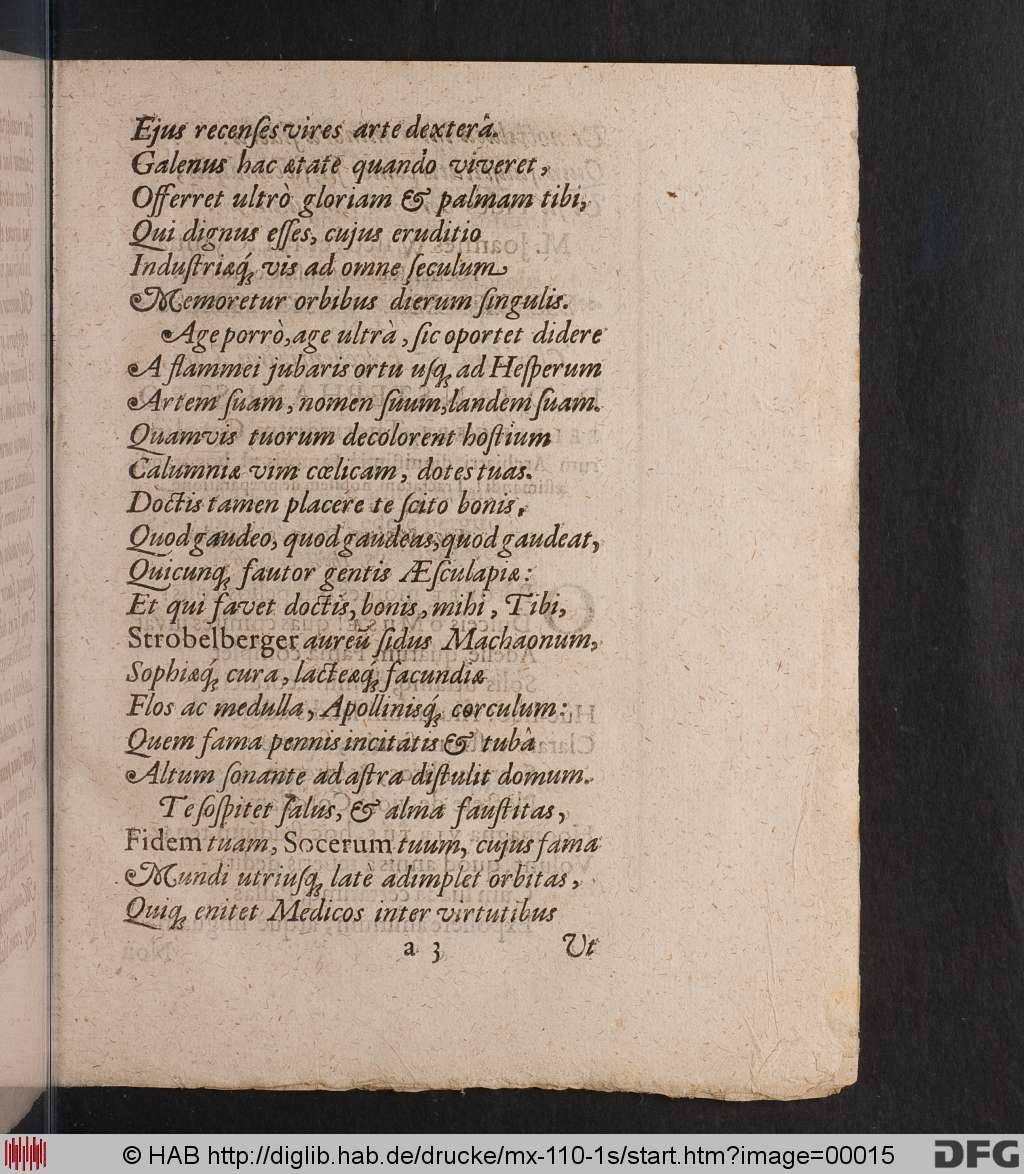 Ejus recenſes vires arte dexterâ.
Galenus hac ætate quando viveret,
Offerret ultrò gloriam & palmam tibi,
Qui dignus eſſes, cujus eruditio
Induſtriæq́ꝫ vis ad omne ſeculum
Memoretur orbibus dierum ſingulis.
Age porrò, age ultrà, ſic oportet didere
A flammei jubaris ortu uſqꝫ ad Heſperum
Artem ſuam, nomen ſuum, landem ſuam.
Quamvis tuorum decolorent hoſtium
Calumniæ vim cœlicam, dotes tuas.
Doctis tamen placere te ſcito bonis,
Quod gaudeo, quod gaudeas, quod gaudeat,
Quicunqꝫ fautor gentis Æſculapiæ:
Et qui favet doctis, bonis, mihi, Tibi,
Strobelberger aureũ ſidus Machaonum,
Sophiæq́ꝫ cura, lacteæq́ꝫ facundiæ
Flos ac medulla, Apollinisq́ꝫ corculum:
Quem fama pennis incitatis & tubâ
Altum ſonante ad aſtra diſtulit domum.
Te ſoſpitet ſalus, & alma fauſtitas,
Fidem tuam, Socerum tuum, cujus fama
Mundi utriuſqꝫ latè adimplet orbitas,
Quiqꝫ enitet Medicos inter virtutibus
a 3 Ut
© HAB http://diglib.hab.de/drucke/mx-110-1s/start.htm?image=00015 DFG